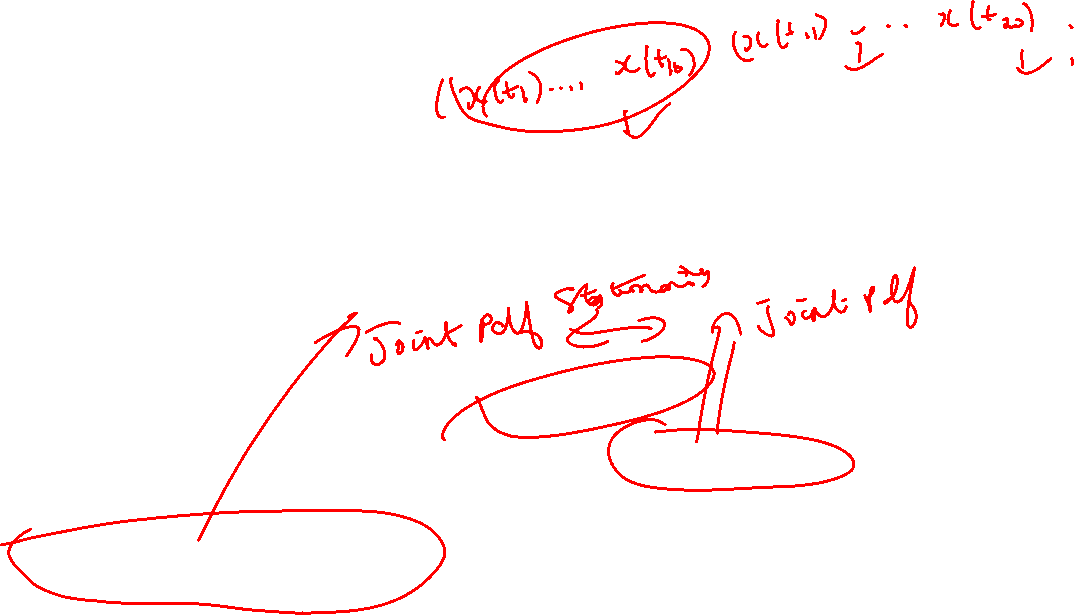 ((x(t₁).... x(t₁₀) (x(t₁₁) .. x(t₂₀) :
Joint Pdf Stationarity Joint Pdf